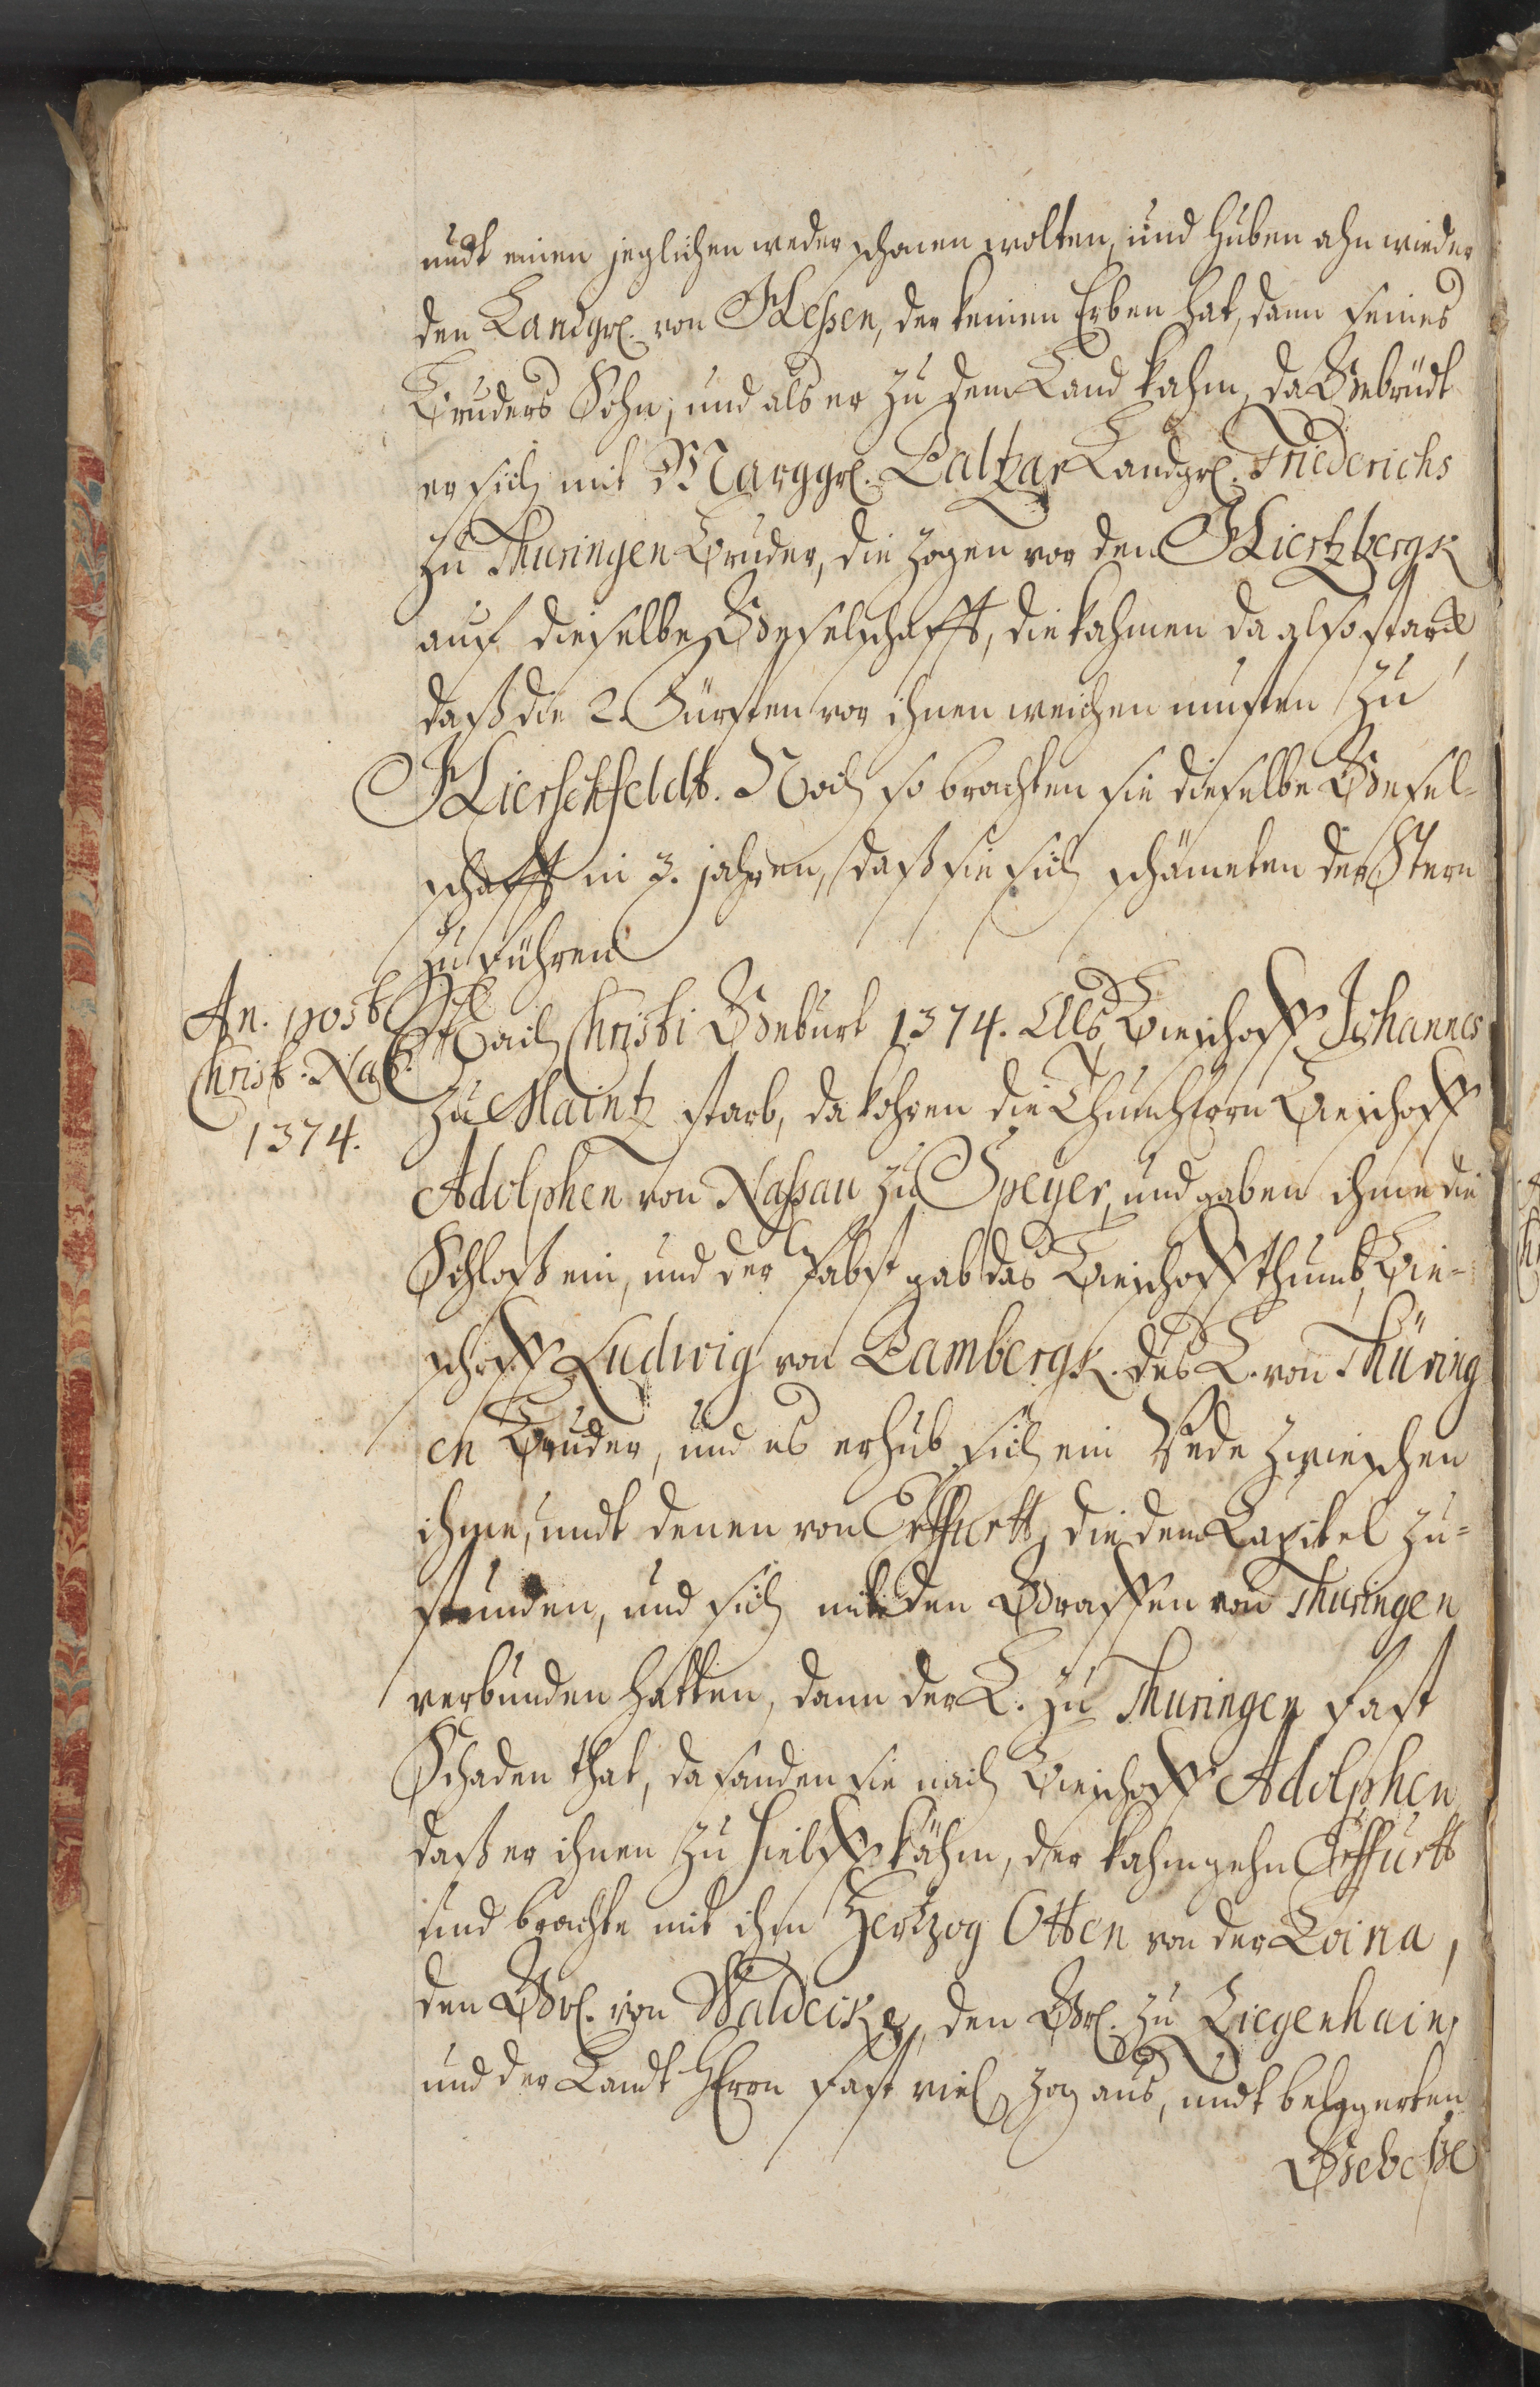 undt einen jeglichen weder schonen wolten, und huben ahn wieder
den Landgr. von Hessen, der keinen Erben hat, dann seines
Bruders Sohn, und als er zu dem Land kahm, da
er sich mit Marggr. Baltzar Landgr. Friederichs
zu Thuringen Bruder, die zogen vor den Hiertzbergk
auf dieselbe Geselschafft, die kahmen da also starck,
daß die 2. Fürsten vor ihnen weichen musten zu
Hierschfeldt. Noch so brachten sie dieselbe Gesel-
schafft in 3. jahren, daß sie sich schämeten der Stern
zu führen
An. post
Christ. Nat.
1374.
Nach Christi Geburt 1374. Als Bieschoff Johannes
zu Maintz starb, da kohren die Thumherrn Bieschoff
Adolphen von Nassau zu Speyer, und gaben ihme die
Schloß ein, und der Pabst gab das Bieschoffthumb, Bie-
schoff Ludwig von Bambergk. des L. von Thüring
en Bruder, und es erhub sich ein Vede zwieschen
ihme, undt denen von Erffurtt, die dem Capitel zu-
stunden, und sich mit den Graffen von Thuringen
verbunden hatten, dann der L. zu Thuringen fast
Schaden that, da sanden sie nach Bieschoff Adolphen
daß er ihnen zu Hielff kähm, der kahm gehn Erffurtt
und brachte mit ihm Hertzog Otten von der Loina,
den Gr. von Waldecke, den Gr. zu Ziegenhain,
und der Landt Herrn fast viel zog aus, undt belagerten
Gebeße